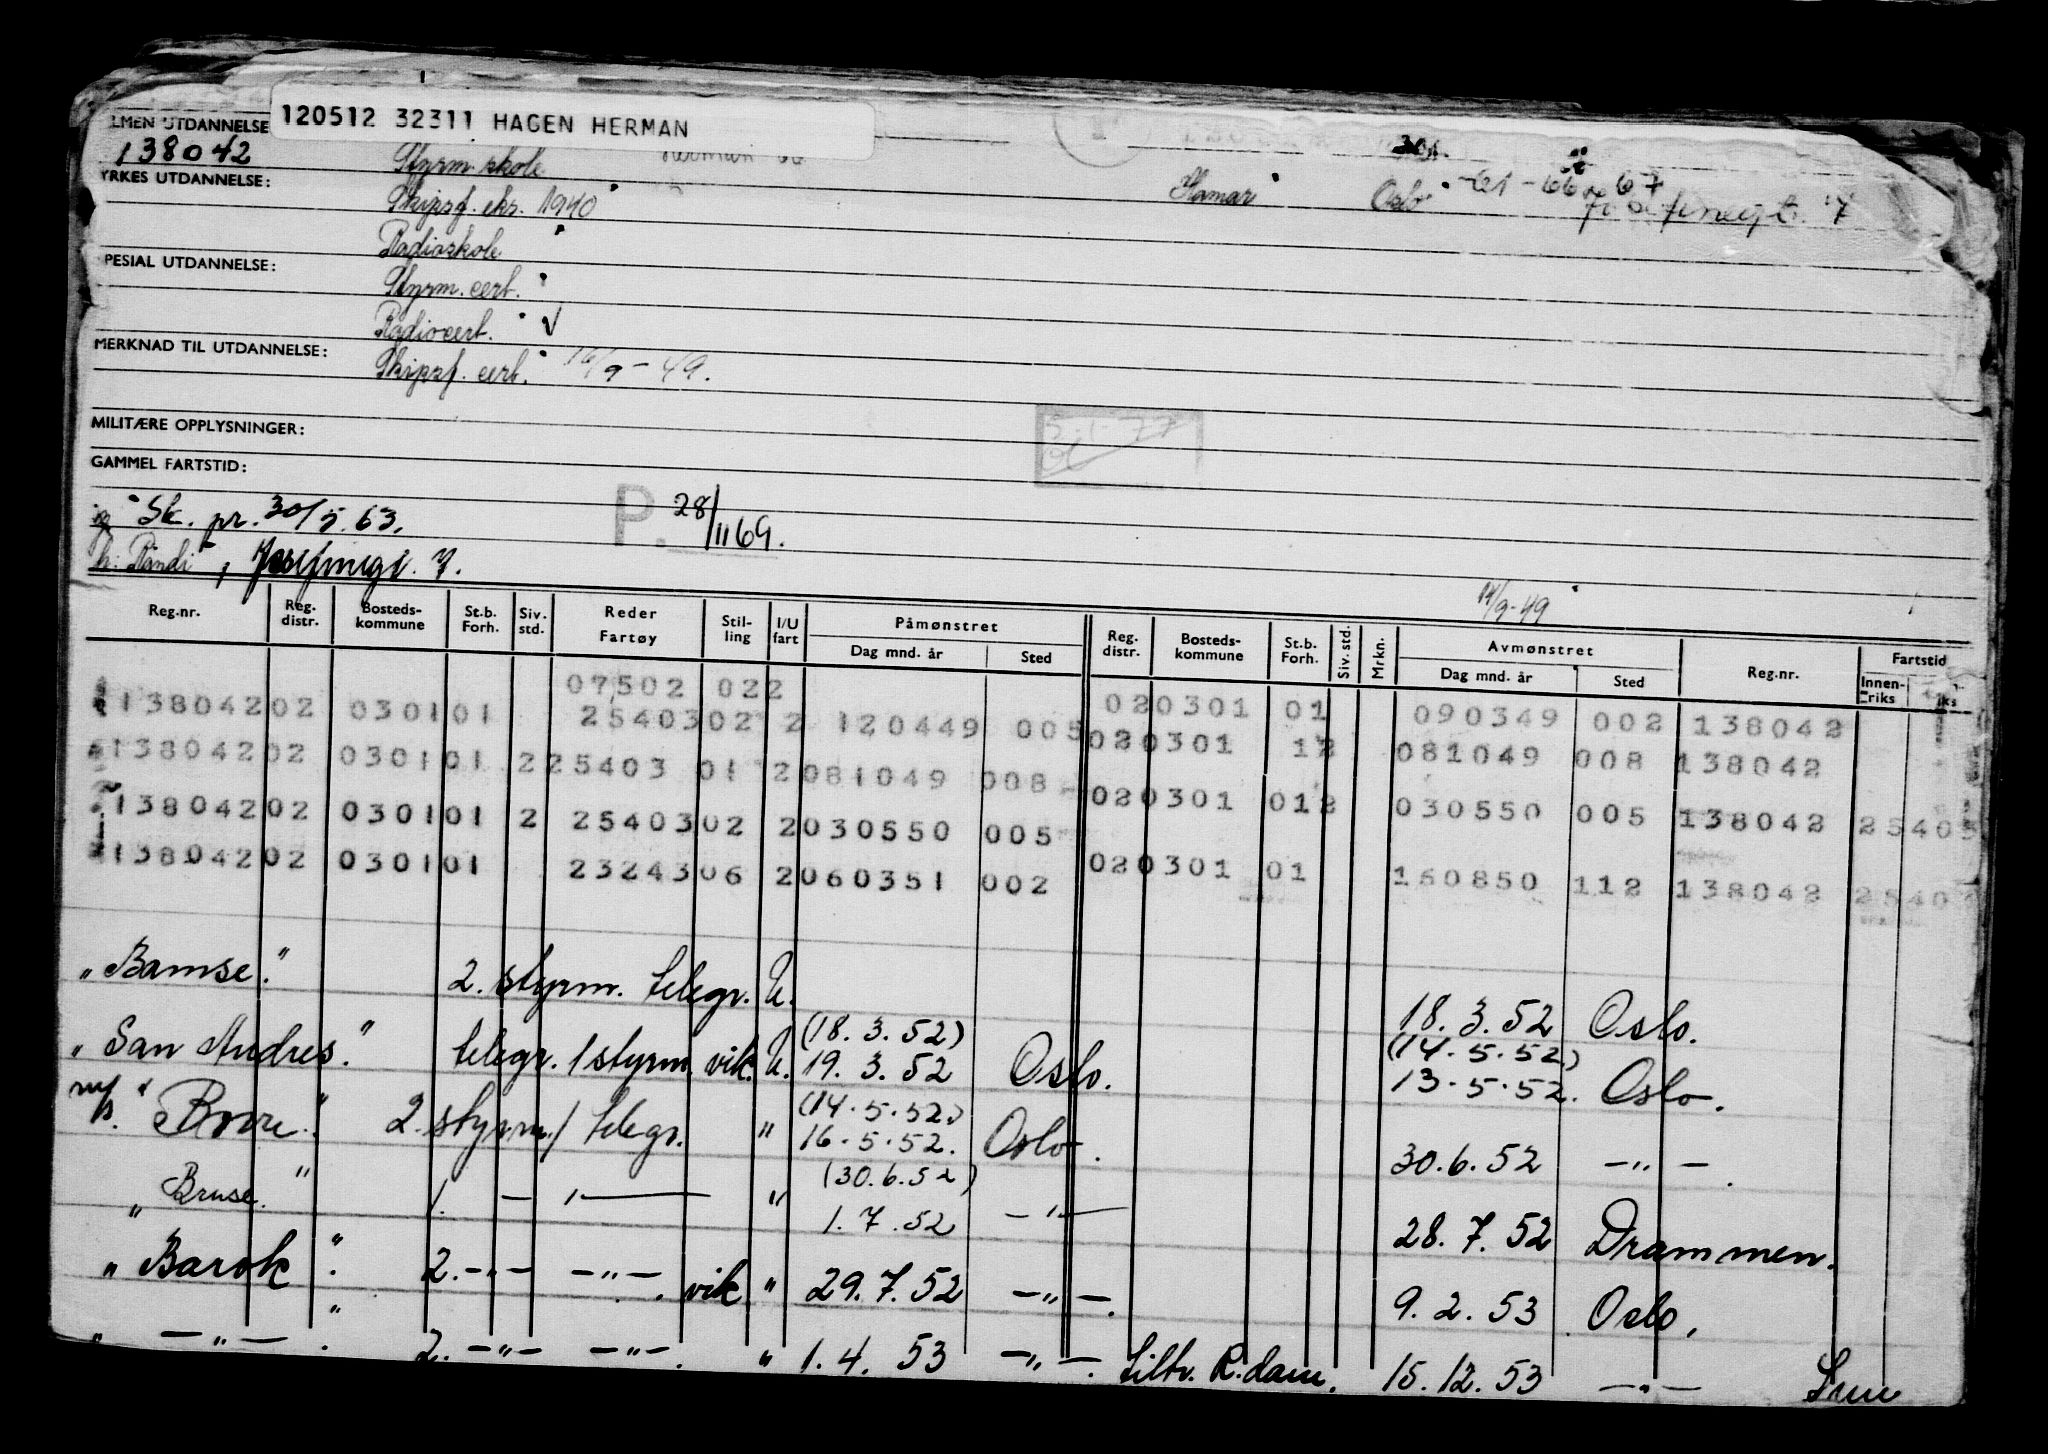 120512 32311 HAGEN HERMAN
LMEN UTDANNELSE
138042
Styrm. skole
YRKES UTDANNELSE:
Skipsf. eks. 1940
Hamar
Oslo -61-66-67
Radioskole
PESIAL UTDANNELSE:
Styrm. cert.
Radiocert. √
MERKNAD TIL UTDANNELSE:
Skipsf. cert. 16/9-49.
MILITÆRE OPPLYSNINGER:
5-1-77
GAMMEL FARTSTID:
Sk. pr. 30/5.63.
P. 28/11 69.
14/9-49
Reg.nr. Reg. distr. Bosteds-kommune St.b. Forh. Siv. std. Reder Fartøy Stil-ling I/U fart Påmønstret Dag mnd. år Sted Reg. distr. Bosteds-kommune St.b. Forh. Siv. std. Mrkn. Avmønstret Dag mnd. år Sted Reg.nr. Fartstid Innen-riks
07502 022
138042 02 0301 01 25403 02 2 120449 005 02 0301 01 090349 002 138042
138042 02 0301 01 2 25403 01 2 081049 008 02 0301 12 081049 008 138042
138042 02 0301 01 2 25403 02 2 030550 005 02 0301 012 030550 005 138042 25403
138042 02 0301 01 23243 06 2 060351 002 02 0301 01 160850 112 138042 2540
„Bamse." 2. styrm. telegr. U. 18.3.52 Oslo.
„San Andres." telegr. / styrm. vik. U. (18.3.52) 19.3.52 Oslo. (14.5.52) 13.5.52. Oslo.
m/s. "Borre." 2. styrm. / telegr. " (14.5.52.) 16.5.52. Oslo. 30.6.52 —"—.
„Bruse." 1. — / — " (30.6.52) 1.7.52 —"— 28.7.52 Drammen.
„Barok". 2. —"— —"—. vik " 29.7.52 —"—. 9.2.53 Oslo.
„ —"— ". 2. —"— —"—. " 1.4.53 —"—. tiltr. R.dam. 15.12.53 —"—